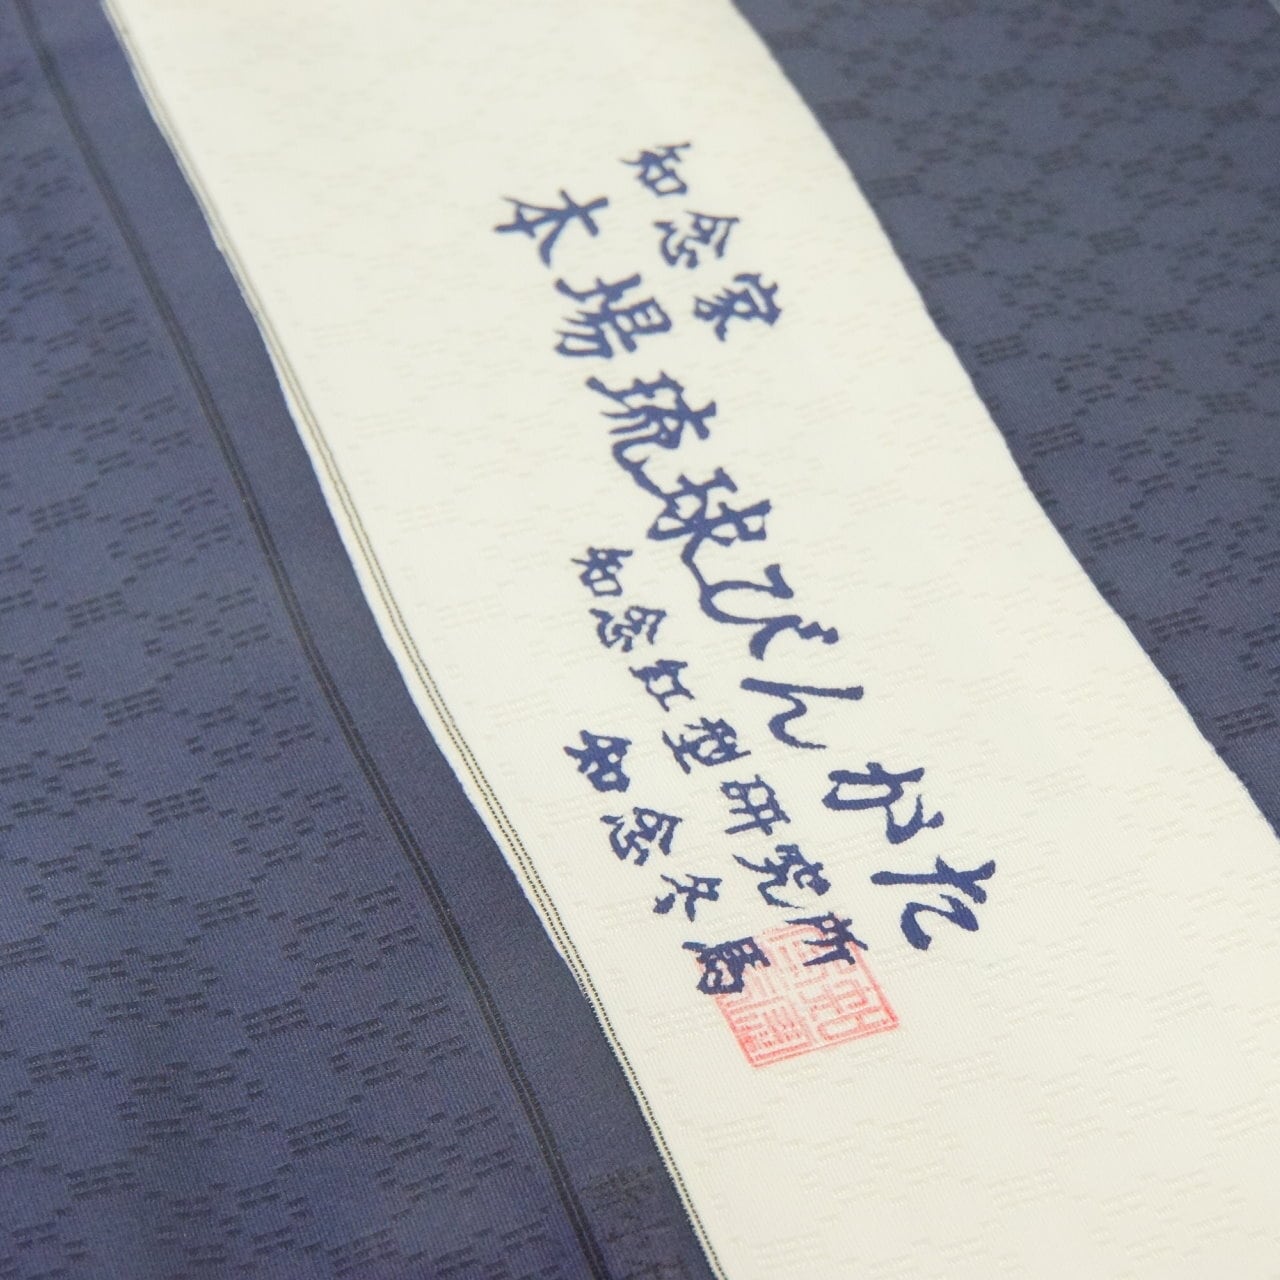 知念家
本場琉球びんがた
知念紅型研究所
知念冬馬